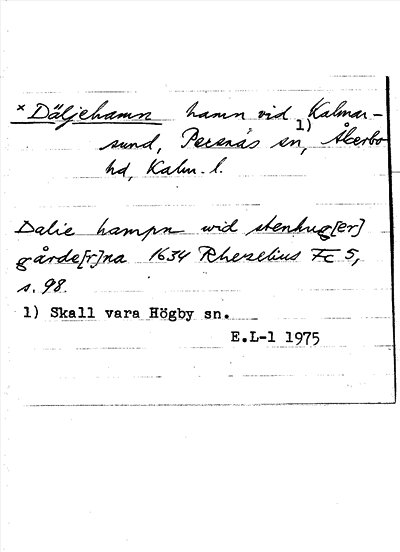 x Däljehamn hamn vid Kalmar-
sund, Persnäs sn, 1) Åkerbo
hd, Kalm. l.
Dalie hampn wid stenhug[er]
gårde[r]na 1634 Rhezelius Fc 5,
s. 98.
1) Skall vara Högby sn.
E.L-l 1975